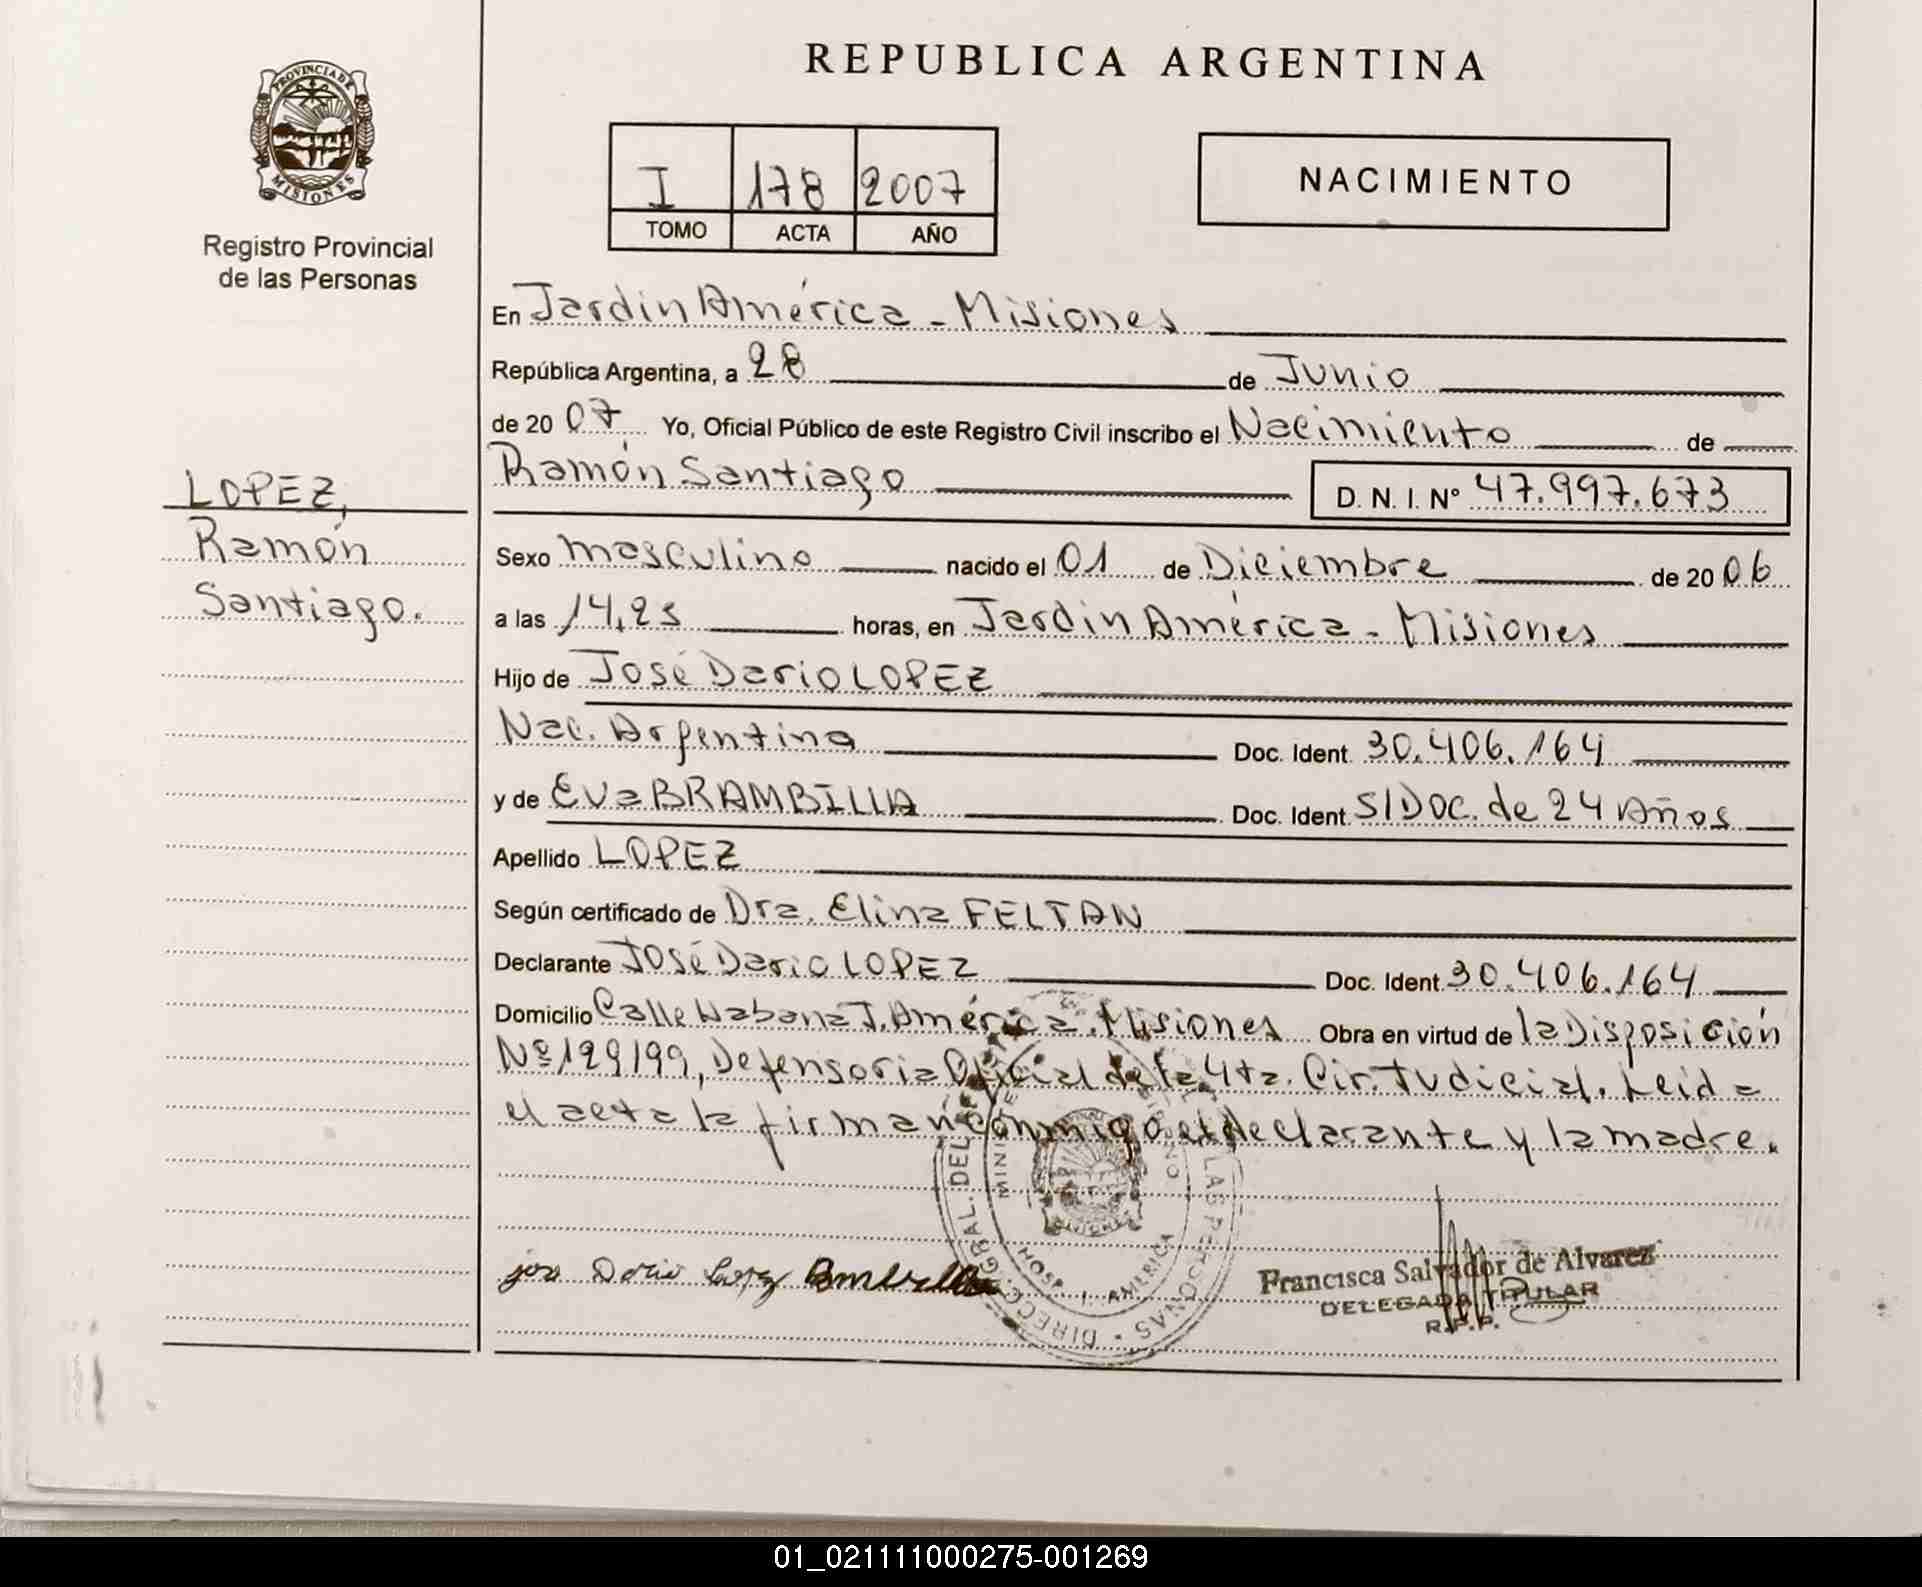 REPUBLICA ARGENTINA
PROVINCIA DE
MISIONES
Registro Provincial
de las Personas
I 178 2007
TOMO ACTA AÑO
NACIMIENTO
LOPEZ,
Ramón
Santiago.
En Jardin América - Misiones
República Argentina, a 28 de Junio
de 2007, Yo, Oficial Público de este Registro Civil inscribo el Nacimiento de
Ramón Santiago D. N. I. Nº 47.997.673
Sexo masculino nacido el 01 de Diciembre de 2006
a las 14,25 horas, en Jardin América - Misiones
Hijo de José Dario LOPEZ
Nac. Argentina Doc. Ident. 30.406.164
y de Eva BRAMBILLA Doc. Ident. S/Doc. de 24 Años
Apellido LOPEZ
Según certificado de Dra. Elina FELTAN
Declarante José Dario LOPEZ Doc. Ident. 30.406.164
Domicilio Calle Habana J. América. Misiones Obra en virtud de la Disposición
Nº 129/99, Defensoria Oficial de la 4ta. Cir. Judicial. Leida
el acta la firman conmigo el declarante y la madre.
jose Dario Lopez Brambilla
HOSP. J. AMERICA
Francisca Salvador de Alvarez
DELEGADA TITULAR
R.P.P.
01_021111000275-001269